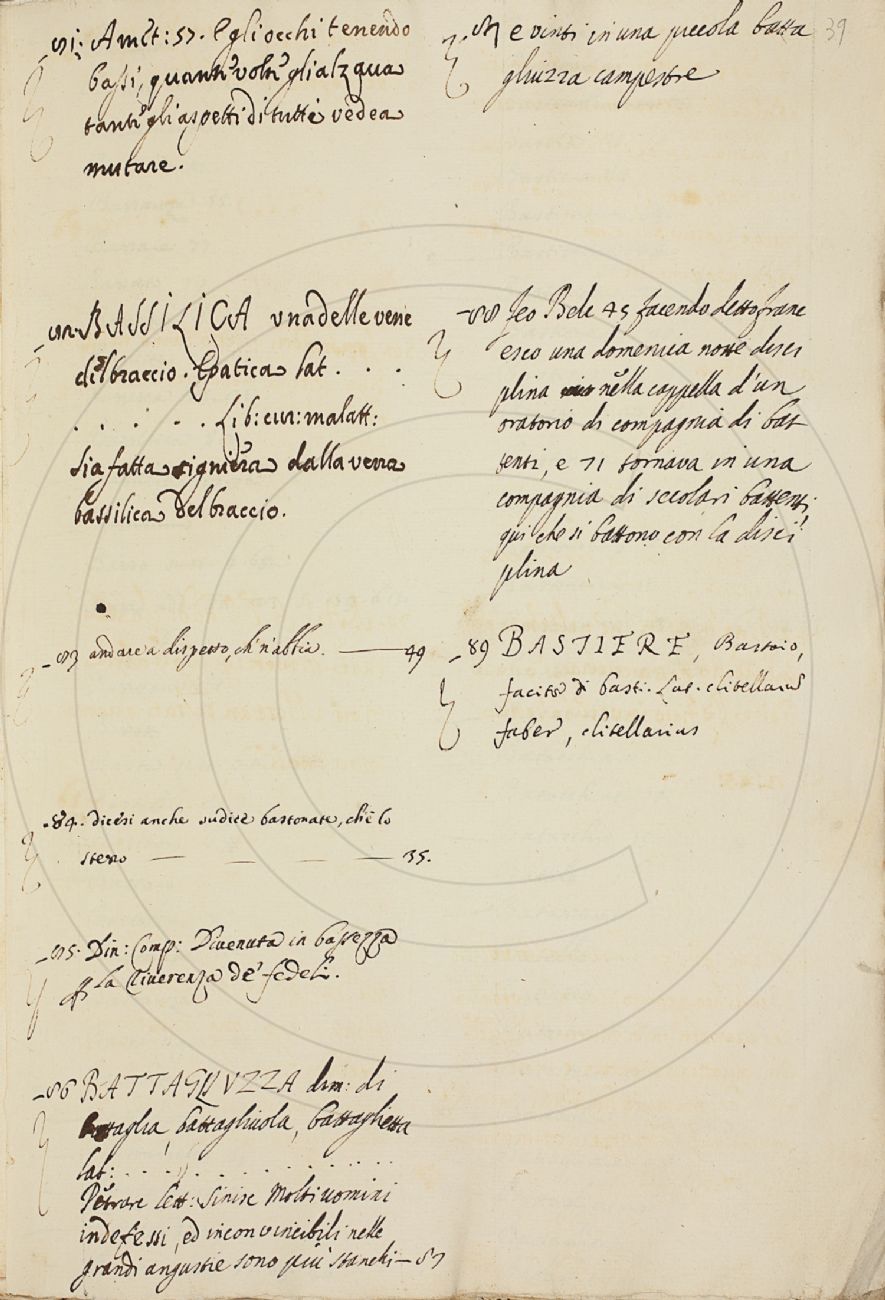 81. Amet: 57. Egli occhi tenendo
bassi, quanti volti gli alzaua
tanti gli aspetti di tutti vedea
mutare.
82. BASSILICA una delle vene
del braccio. Epatica lat. . . .
. . . . . Lib: cur: malatt:
sia fatta signiera dalla vena
bassilica del braccio.
83 andare a dispetto, ch'n'abbia. —— 49
84. dicesi anche sudice bastonate, ch'è lo
stesso — — — — 35.
85. Din: Comp: Diuenuta in bassezza
la riuerenza de' fedeli.
86 BATTAGLIUZZA dim: di
battaglia, battagliuola, battaglietta
lat: . . . . . . . . . . .
Petrarc lett: Sinisc Molti uomini
indefessi, ed inconvincibili nelle
grandi angustie sono più stanchi — 87
39
87 e vinti in una piccola batta
gliuzza campestre
88 Feo Belc 45 facendo detto franc
esco una domenica notte disci
plina nella cappella d'un
oratorio di compagnia di bat
tenti, e 71 tornava in una
compagnia di secolari battenti,
qui che si battono con la disci
plina
89 BASTIERE, Bastaio,
facitor di basti. Lat. clitellarum
faber, clitellarius